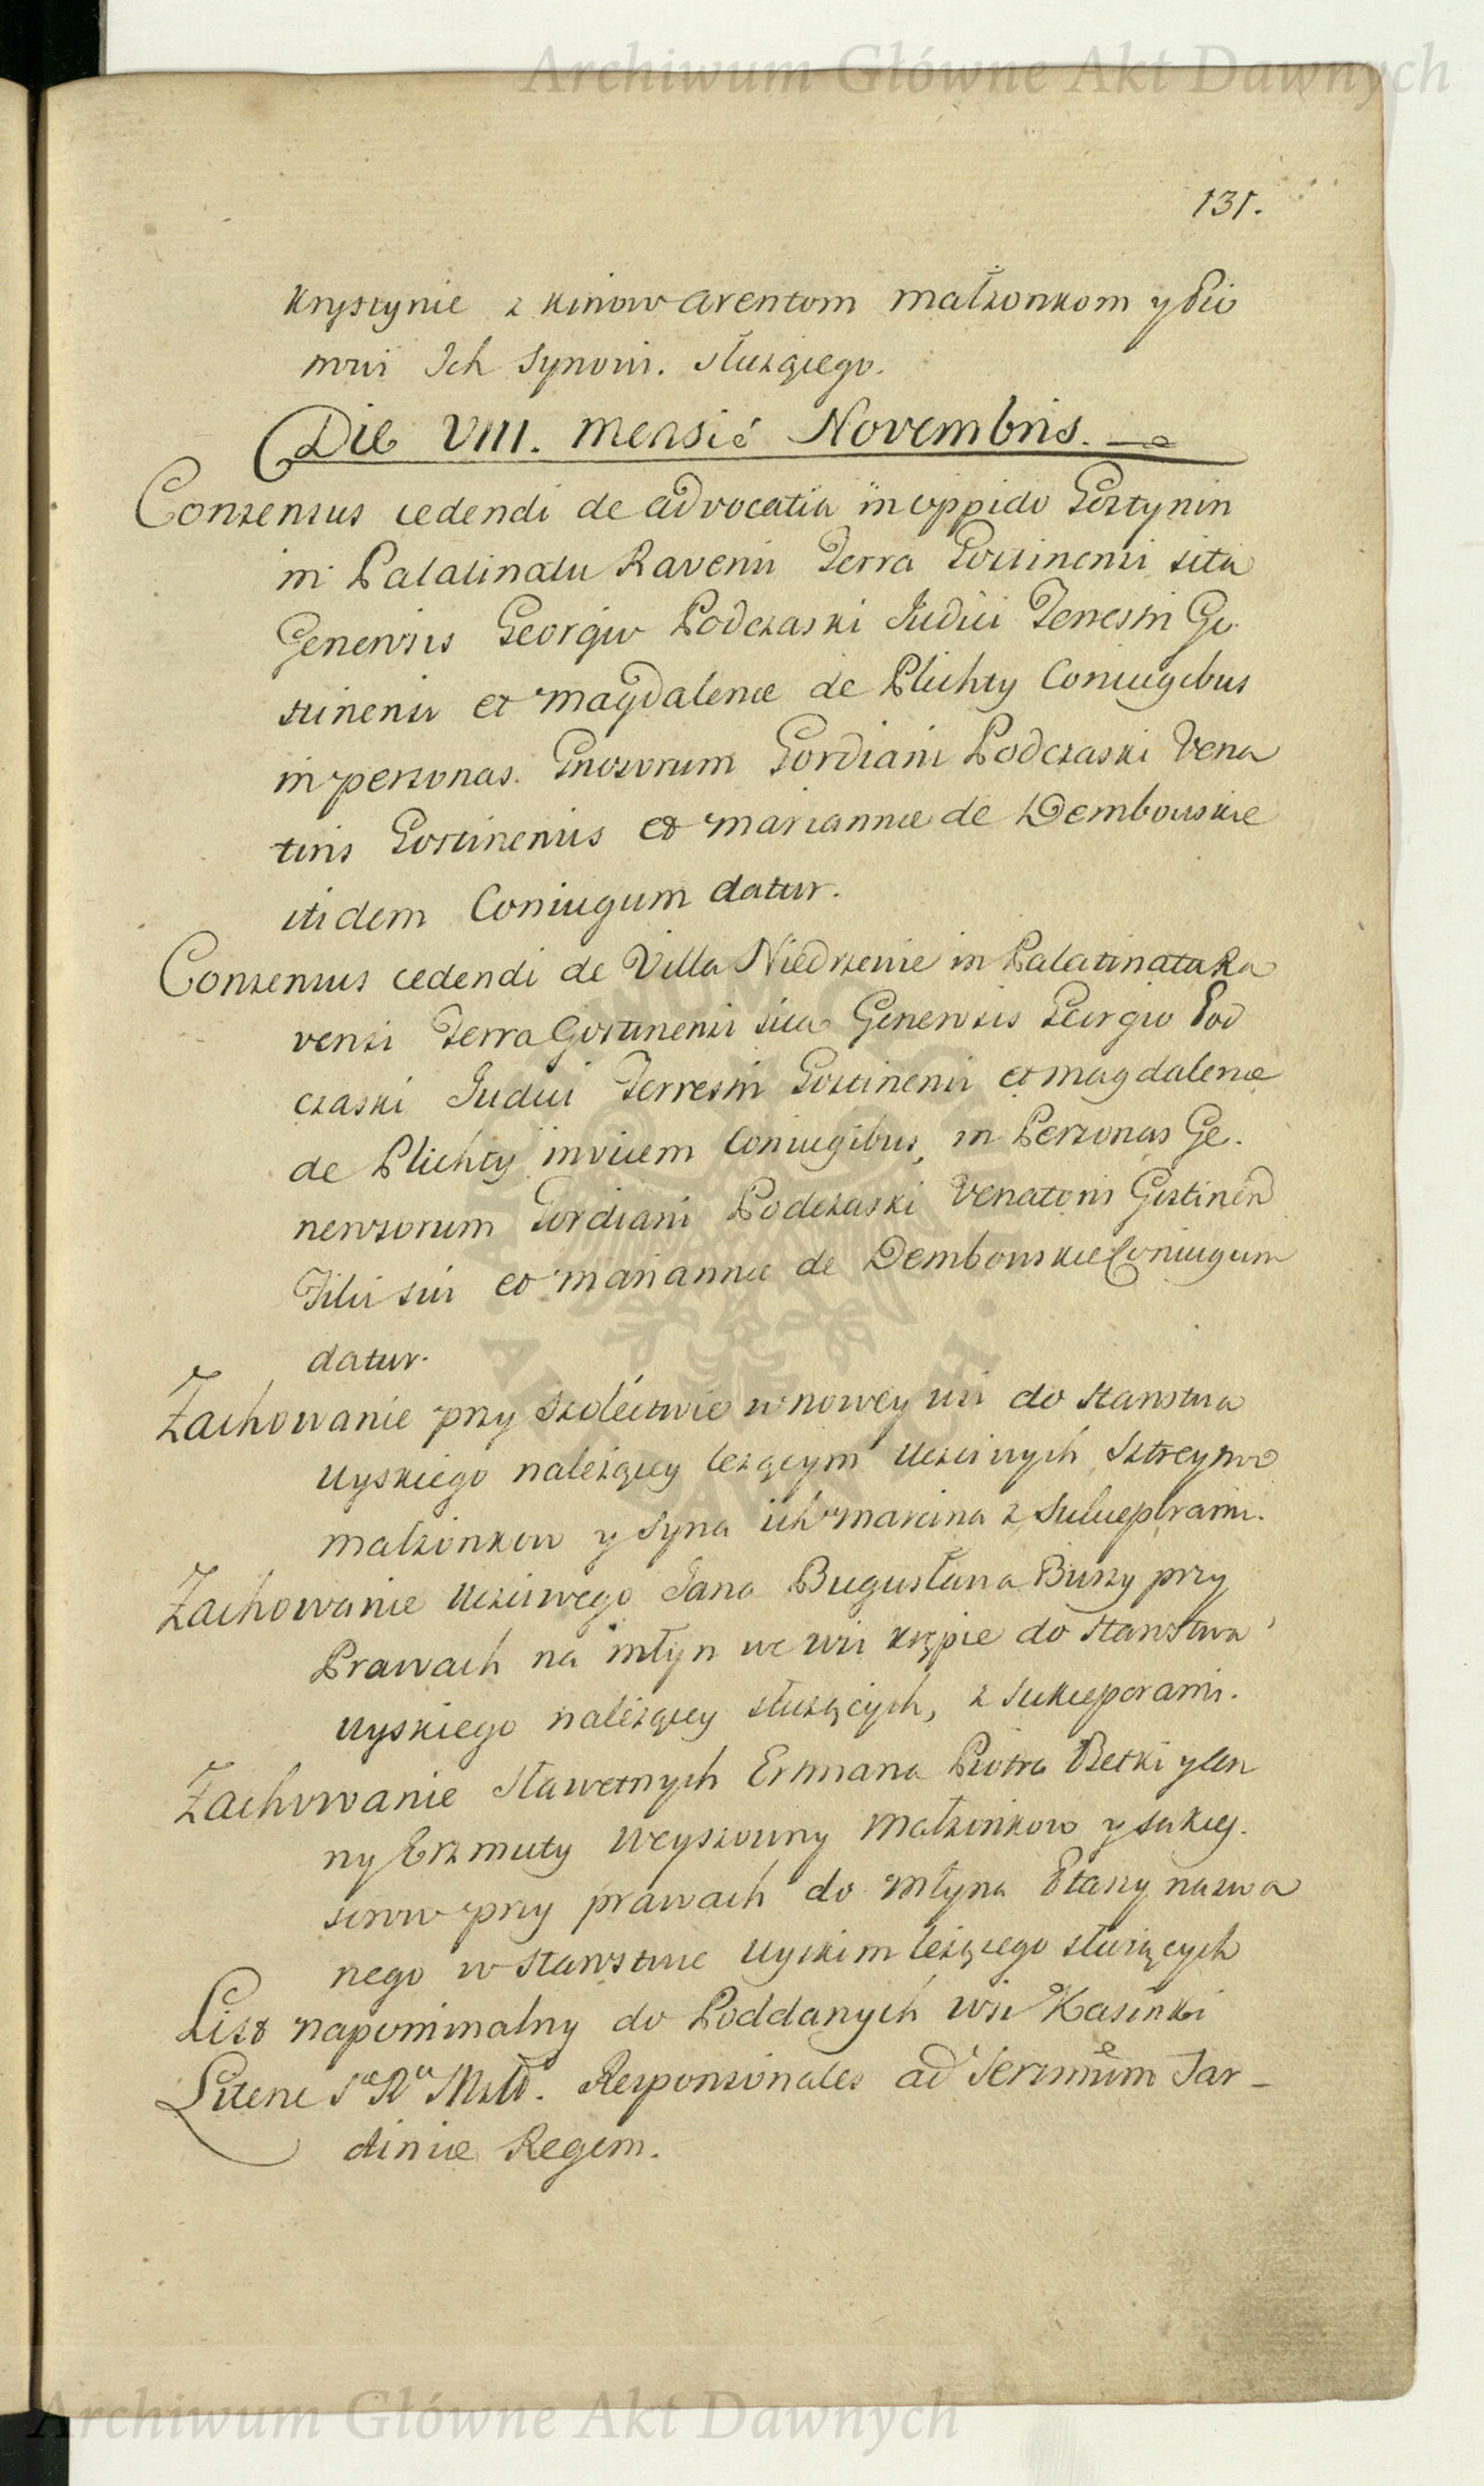 Archiwum Główne Akt Dawnych
131.
Krystynie z Kinow Arentom małżonkom y Pio
trowi Ich Synowi. służącego.
Die VIII. Mensis Novembris.
Consensus cedendi de advocatia in oppido Gostynin
in Palatinatu Ravensi Terra Gostinensi sita
Generosis Georgio Podczaski Judici Terrestri Go
stinensi et Magdalenæ de Plichty Coniugibus
in personas Gnosorum Gordiani Podczaski Vena
toris Gostinensis et Mariannæ de Dembowskie
itidem Coniugum datur.
Consensus cedendi de Villa Niedrzenie in Palatinatu Ra
vensi Terra Gostinensi sita Generosis Georgio Pod
czaski Judici Terrestri Gostinensi et Magdalenæ
de Plichty invicem Coniugibus, in Personas Ge.
nerosorum Gordiani Podczaski Venatoris Gostinen
Filii sui et Mariannæ de Dembowskie Coniugum
datur.
Zachowanie przy Szolectwie w nowey wsi do Starostwa
Uyskiego należącey leżącym Uczciwych
małżonkow y Syna ich Marcina z Sukceszorami.
Zachowanie Uczciwego Jana Bugusława Buszy przy
Prawach na młyn we wsi Krępie do Starostwa
Uyskiego należącey służących, z Sukcessorami.
Zachowanie Sławetnych Ermana Piotra Betki y An
ny Erzmuty Weyszowny Małżonkow y Sukces.
sorow przy prawach do Młyna Ptaszy nazwa
nego w Starostwie Uyskim leżącego służących
List napominalny do Poddanych wsi Kasinki
Literæ Sæ Ræ Mttis. Responsionales ad Serssmum Sar-
diniæ Regem.
Archiwum Główne Akt Dawnych